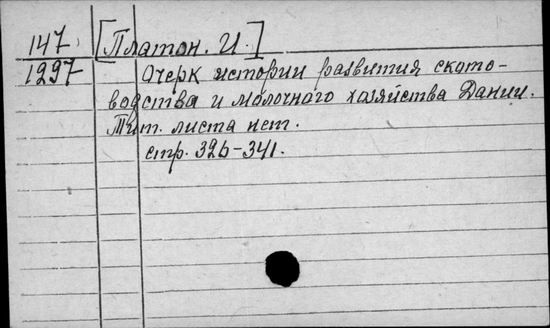 147 [Платон. И.]
1297 Очерк истории развития ското-
водства и молочного хозяйства Дании.
Тит. листа нет.
стр. 326-341.